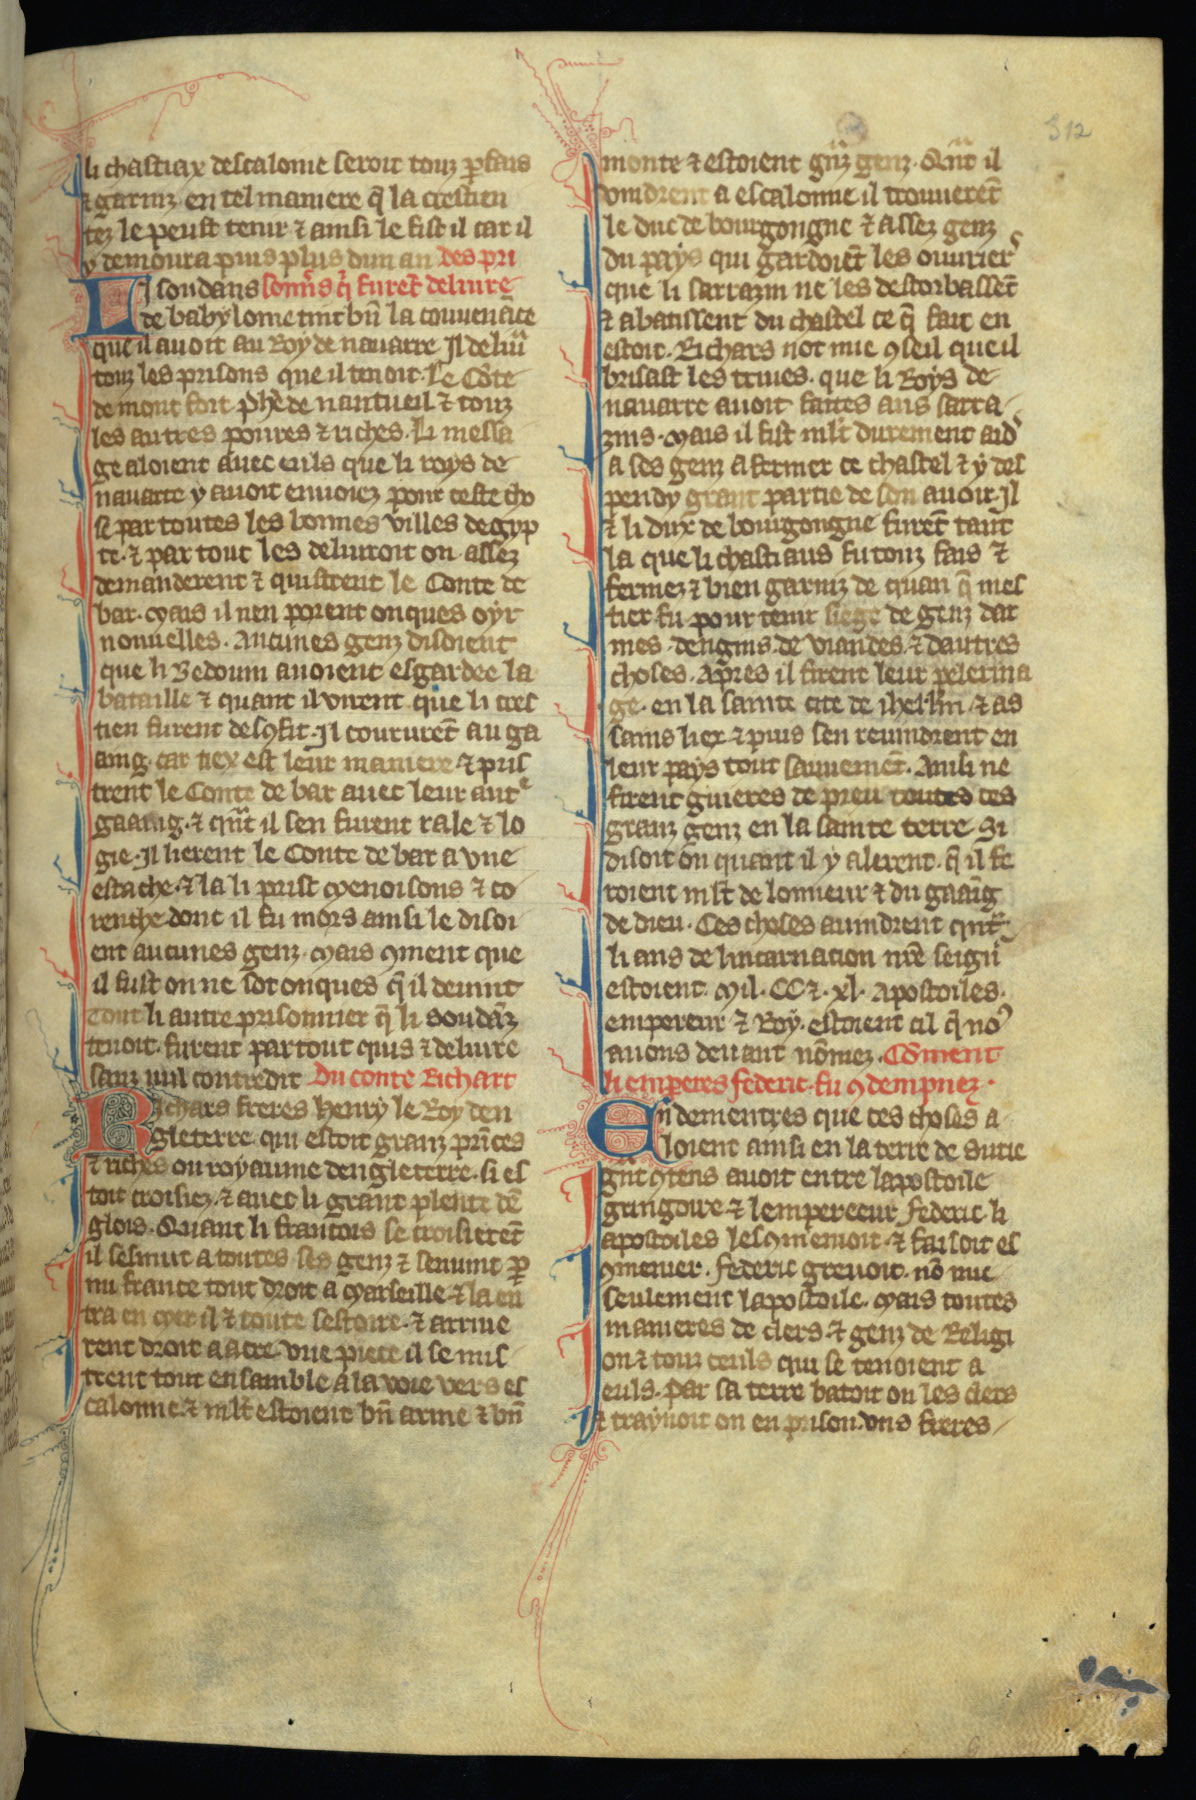 312
li chastiax descalonne seroit touz pfais
⁊ garniz en tel maniere q̃ la crestien
tez le peust tenir ⁊ ainsi le fist il car il
y demoura puis plus dun an des pri
LJ soudans sonñs q̃ furet̃ deliure
de babylonne tint bñ la couuenãce
que il auoit au Roy de nauarre Il deliur̃
touz les prisons que il tenoit. Le Cõte
de mont fort phẽ de nantueil ⁊ touz
les autres poures ⁊ riches. Li messa
ge aloient auec euls que li roys de
nauarre y auoit enuoiez pour ceste cho
se par toutes les bonnes villes degyp
te. ⁊ par tout les deliuroit on assez
demanderent ⁊ quistrent le Conte de
bar. Mais il nen porent onques oÿr
nouuelles. Aucunes genz disoient
que li Bedouin auoient esgardee la
bataille ⁊ quant il virent que li cres
tien furent desꝯfit. Il coururet̃ au ga
aing. car tiex est leur maniere ⁊ pris
trent le Conte de bar auec leur autͤ
gaaing. ⁊ qñt il sen furent rale ⁊ lo
gie. Il lierent le Conte de bar a vne
estache. ⁊ la li prist menoisons ⁊ co
renche dont il fu mors ainsi le disoi
ent aucunes genz. Mais ꝯment que
il fust on ne sot onques q̃ il deuint
Tout li autre prisonnier q̃ li soudãz
tenoit. furent partout quis ⁊ deliure
sanz nul contredit Du conte Richart
RIchars freres henry le Roy den
gleterre qui estoit granz prĩces
⁊ riches ou royaume dengleterre. si es
toit croisiez. ⁊ auec li grant plente dẽ
glois. Quant li francois se croisieret̃
il sesmut a toutes ses genz ⁊ senuint ꝑ
mi france tout droit a Marseille ⁊ la en
tra en mer il ⁊ toute sestoire. ⁊ arriue
rent droit a acre. vne piece il se mis
trent tout ensamble a la voie vers es
calonne. ⁊ mlt̃ estoient bñ arme ⁊ bñ
monte ⁊ estoient gñz genz. Qñt il
vindrent a escalonne il trouueret̃
le duc de bourgongne ⁊ assez genz
du paÿs qui gardoiet̃ les ouurierˢ
que li sarrazin ne les destorbasset̃
⁊ abatissent du chastel ce q̃ fait en
estoit. Richars not mie ꝯseil que il
brisast les triues. que li Roÿs de
nauarre auoit faites aus sarra
zins. Mais il fist mlt̃ durement aidˢ
a ses genz a fermer ce chastel ⁊ y des
pendy grant partie de son auoir. Il
⁊ li dux de bourgongne furet̃ tant
la que li chastiaus fu touz fais ⁊
fermez ⁊ bien garniz de quan q̃ mes
tier fu pour tenir siege de genz dar
mes. dengins. de viandes. ⁊ dautres
choses. Apres il firent leur pelerina
ge. en la sainte cite de iherlm̃. ⁊ as
sains liex ⁊ puis sen reuindrent en
leur paÿs tout sauuemẽt. Ainsi ne
firent guieres de preu toutes ces
granz genz en la sainte terre. Si
disoit on quant il y alerent. q̃ il fe
roient mlt̃ de lonneur ⁊ du gaaĩg
de dieu. Ces choses auindrent qñt
li ans de lincarnacion nr̃e seignr̃
estoient. Mil. CC⁊. xl. Apostoiles.
empereur ⁊ Roy. estoient cil q̃ noˀ
auons deuant nõmez. Cõment
li emperes federic. fu ꝯdempnez.
En dementres que ces choses a
loient ainsi en la terre de surie
gñt ꝯtens auoit entre lapostoile
gringoire ⁊ lempereeur federic. li
apostoiles lesꝯmenioit. ⁊ faisoit es
ꝯmenier. federic greuoit. nõ mie
seulement lapostoile. Mais toutes
manieres de clers ⁊ genz de Religi
on ⁊ touz ceuls qui se tenoient a
euls. par sa terre batoit on les clers
⁊ traÿnoit on en prison. vns freres